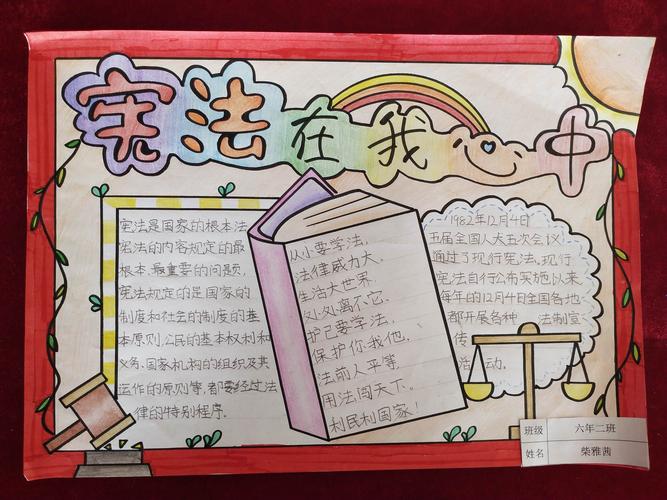 宪法在我心中
宪法是国家的根本法
宪法的内容规定的最
根本、最重要的问题,
宪法规定的是国家的
制度和社会的制度的基
本原则,公民的基本权利和
义务、国家机构的组织及其
运作的原则等,都要经过法
律的特别程序。
从小要学法,
法律威力大、
生活大世界,
处处离不它、
护己要学法,
保护你我他,
法前人平等
用法闯天下。
利民利国家!
1982年12月4日
五届全国人大五次会议
通过了现行宪法、现行
宪法自行公布实施以来
每年的12月4日全国各地
都开展各种 法制宣
传
活 动.
班级 六年二班
姓名 柴雅茜